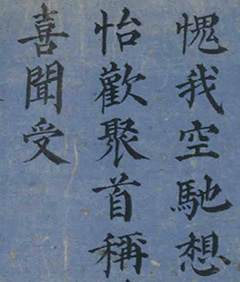 愧我空馳想
怡歡聚首稱
喜聞受